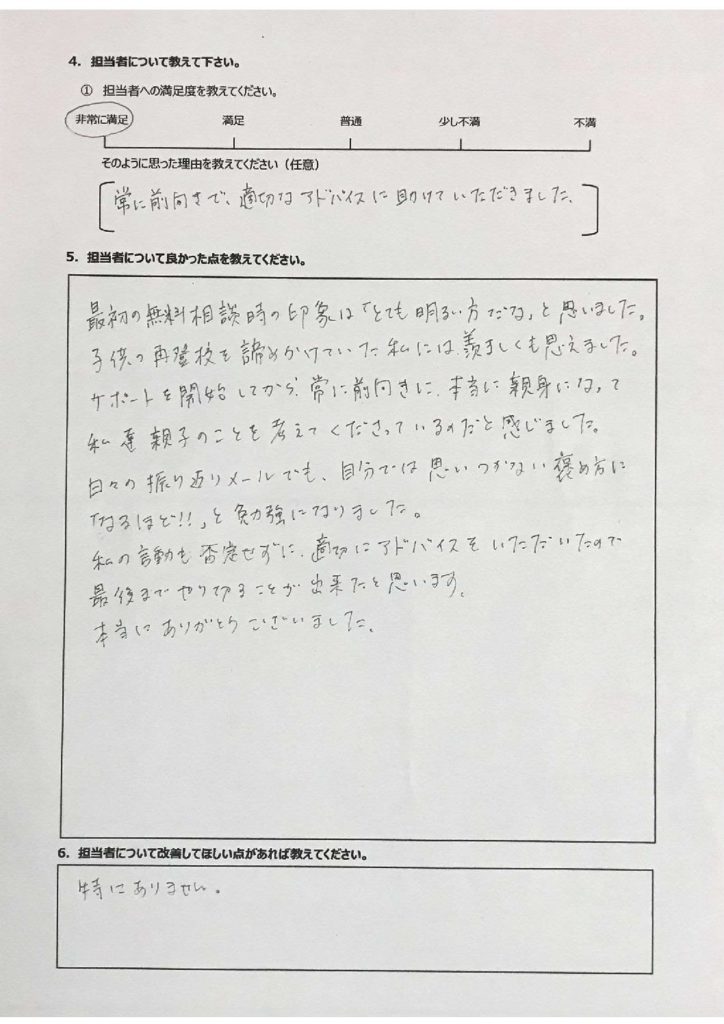 4. 担当者について教えて下さい。
① 担当者への満足度を教えてください。
非常に満足 満足 普通 少し不満 不満
そのように思った理由を教えてください（任意）
常に前向きで、適切なアドバイスに助けていただきました。
5. 担当者について良かった点を教えてください。
最初の無料相談時の印象は「とても明るい方だな」と思いました。
子供の再登校を諦めかけていた私には、羨ましくも思えました。
サポートを開始してから、常に前向きに、本当に親身になって
私達親子のことを考えてくださっているのだと感じました。
日々の振り返りメールでも、自分では思いつかない褒め方に
「なるほど!!」と勉強になりました。
私の言動も否定せずに、適切にアドバイスをいただいたので
最後までやり切ることが出来たと思います。
本当にありがとうございました。
6. 担当者について改善してほしい点があれば教えてください。
特にありません。